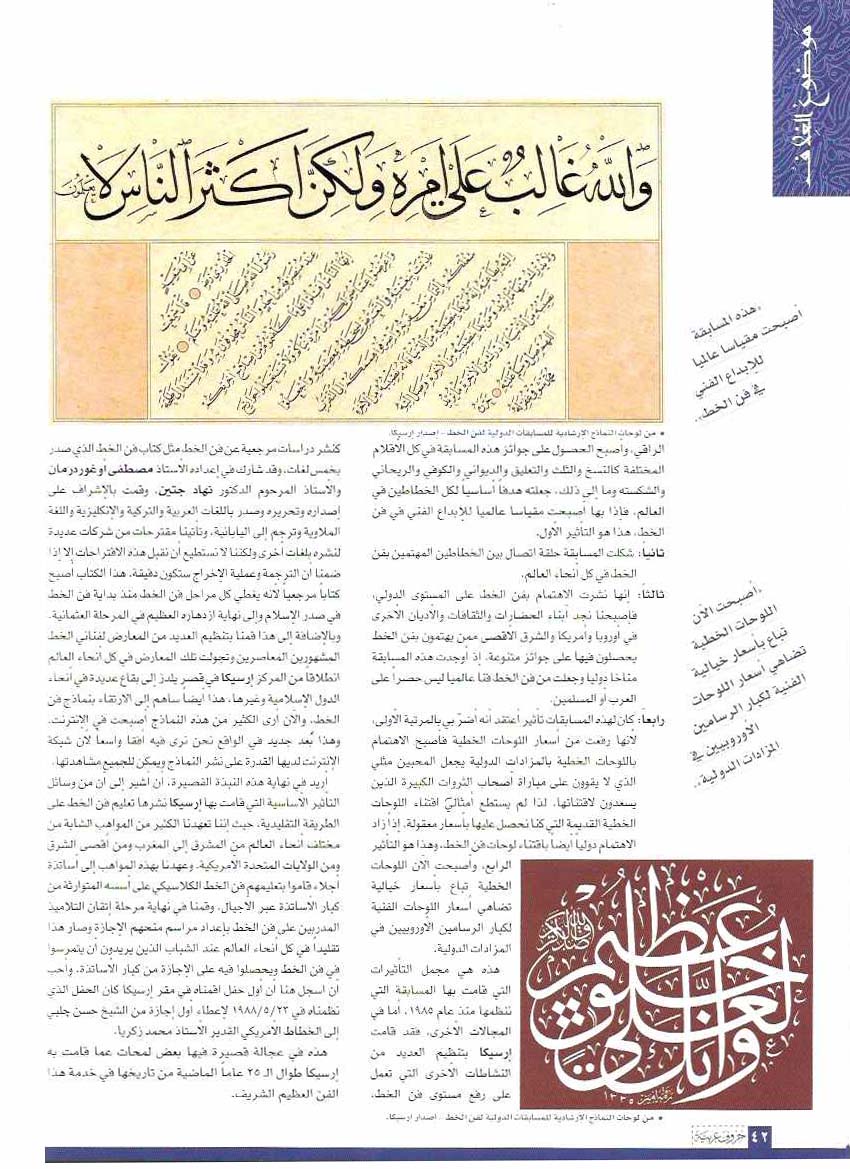 موضوع الغلاف
والله غالب على امره ولكن اكثر الناس لا يعلمون
• من لوحات النماذج الإرشادية للمسابقات الدولية لفن الخط - إصدار إرسيكا.
«هذه المسابقة
أصبحت مقياسا عالميا
للإبداع الفني
في فن الخط».
الراقي، وأصبح الحصول على جوائز هذه المسابقة في كل الأقلام
المختلفة كالنسخ والثلث والتعليق والديواني والكوفي والريحاني
والشكسته وما إلى ذلك، جعلته هدفاً أساسياً لكل الخطاطين في
العالم، فإذا بها أصبحت مقياسا عالميا للإبداع الفني في فن
الخط، هذا هو التأثير الأول.
ثانيا: شكلت المسابقة حلقة اتصال بين الخطاطين المهتمين بفن
الخط في كل أنحاء العالم.
ثالثا: إنها نشرت الاهتمام بفن الخط على المستوى الدولي،
فأصبحنا نجد أبناء الحضارات والثقافات والأديان الأخرى
في أوروبا وأمريكا والشرق الأقصى ممن يهتمون بفن الخط
يحصلون فيها على جوائز متنوعة، إذ أوجدت هذه المسابقة
مناخا دوليا وجعلت من فن الخط فنا عالميا ليس حصراً على
العرب أو المسلمين.
رابعا: كان لهذه المسابقات تأثير أعتقد أنه أضر بي بالمرتبة الأولى،
لأنها رفعت من أسعار اللوحات الخطية فأصبح الاهتمام
باللوحات الخطية بالمزادات الدولية يجعل المحبين مثلي
الذي لا يقوون على مباراة أصحاب الثروات الكبيرة الذين
يسعدون لاقتنائها، لذا لم يستطع أمثالي اقتناء اللوحات
الخطية القديمة التي كنا نحصل عليها بأسعار معقولة، إذ زاد
الاهتمام دولياً أيضاً باقتناء لوحات فن الخط، وهذا هو التأثير
الرابع، وأصبحت الآن اللوحات
الخطية تباع بأسعار خيالية
تضاهي أسعار اللوحات الفنية
لكبار الرسامين الأوروبيين في
المزادات الدولية.
هذه هي مجمل التأثيرات
التي قامت بها المسابقة التي
ننظمها منذ عام ١٩٨٥، أما في
المجالات الأخرى، فقد قامت
إرسيكا بتنظيم العديد من
النشاطات الأخرى التي تعمل
على رفع مستوى فن الخط،
«أصبحت الآن
اللوحات الخطية
تباع بأسعار خيالية
تضاهي أسعار اللوحات
الفنية لكبار الرسامين
الأوروبيين في
المزادات الدولية».
وانك لعلى خلق عظيم
١٣٣٥
• من لوحات النماذج الإرشادية للمسابقات الدولية لفن الخط - إصدار إرسيكا.
كنشر دراسات مرجعية عن فن الخط مثل كتاب فن الخط الذي صدر
بخمس لغات، وقد شارك في إعداده الأستاذ مصطفى أوغور درمان
والأستاذ المرحوم الدكتور نهاد جتين، وقمت بالإشراف على
إصداره وتحريره وصدر باللغات العربية والتركية والإنكليزية واللغة
الملاوية وترجم إلى اليابانية، وتأتينا مقترحات من شركات عديدة
لنشره بلغات أخرى ولكننا لا نستطيع أن نقبل هذه الاقتراحات إلا إذا
ضمنا أن الترجمة وعملية الإخراج ستكون دقيقة. هذا الكتاب أصبح
كتاباً مرجعياً لأنه يغطي كل مراحل فن الخط منذ بداية فن الخط
في صدر الإسلام وإلى نهاية ازدهاره العظيم في المرحلة العثمانية.
وبالإضافة إلى هذا قمنا بتنظيم العديد من المعارض لفناني الخط
المشهورين المعاصرين وتجولت تلك المعارض في كل أنحاء العالم
انطلاقا من المركز إرسيكا في قصر يلدز إلى بقاع عديدة في أنحاء
الدول الإسلامية وغيرها، هذا أيضا ساهم إلى الارتقاء بنماذج فن
الخط، والآن أرى الكثير من هذه النماذج أصبحت في الإنترنت،
وهذا بُعد جديد في الواقع نحن نرى فيه أفقا واسعا لأن شبكة
الإنترنت لديها القدرة على نشر النماذج ويمكن للجميع مشاهدتها.
أريد في نهاية هذه النبذة القصيرة، أن أشير إلى أن من وسائل
التأثير الأساسية التي قامت بها إرسيكا نشرها تعليم فن الخط على
الطريقة التقليدية، حيث إننا تعهدنا الكثير من المواهب الشابة من
مختلف أنحاء العالم من المشرق إلى المغرب ومن أقصى الشرق
ومن الولايات المتحدة الأمريكية، وعهدنا بهذه المواهب إلى أساتذة
أجلاء قاموا بتعليمهم فن الخط الكلاسيكي على أسسه المتوارثة من
كبار الأساتذة عبر الأجيال، وقمنا في نهاية مرحلة إتقان التلاميذ
المدربين على فن الخط بإعداد مراسم منحهم الإجازة وصار هذا
تقليداً في كل أنحاء العالم عند الشباب الذين يريدون أن يتمرسوا
في فن الخط ويحصلوا فيه على الإجازة من كبار الأساتذة، وأحب
أن أسجل هنا أن أول حفل أقمناه في مقر إرسيكا كان الحفل الذي
نظمناه في ١٩٨٨/٥/٢٣ لإعطاء أول إجازة من الشيخ حسن جلبي
إلى الخطاط الأمريكي القدير الأستاذ محمد زكريا.
هذه في عجالة قصيرة فيها بعض لمحات عما قامت به
إرسيكا طوال الـ ٢٥ عاما الماضية من تاريخها في خدمة هذا
الفن العظيم الشريف.
٤٢ حروف عربية